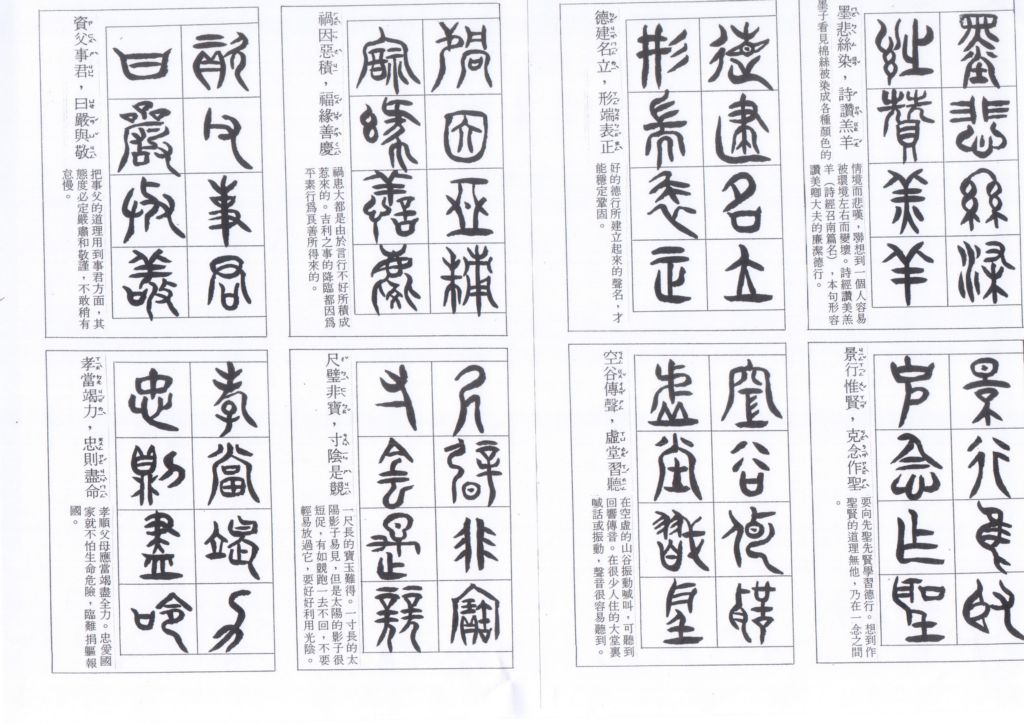 墨悲絲染
詩讚羔羊
墨悲絲染，詩讚羔羊
墨子看見棉絲被染成各種顏色的
情境而悲嘆，聯想到一個人容易
被環境左右而變壞。詩經讚美羔
羊（詩經召南篇名），本句形容
讚美鄉大夫的廉潔德行。
景行惟賢
克念作聖
景行惟賢，克念作聖
要向先聖先賢學習德行。想到作
聖賢的道理無他，乃在一念之間
。
德建名立
形端表正
德建名立，形端表正
好的德行所建立起來的聲名，才
能穩定鞏固。
空谷傳聲
虛堂習聽
空谷傳聲，虛堂習聽
在空虛的山谷振動喊叫，可聽到
回響傳音。在很少人住的大堂裏
喊話或振動，聲音很容易聽到。
禍因惡積
福緣善慶
禍因惡積，福緣善慶
禍患大都是由於言行不好所積成
惹來的。吉利之事的降臨都因爲
平素行爲良善所得來的。
尺璧非寶
寸陰是競
尺璧非寶，寸陰是競
一尺長的寶玉難得。一寸長的太
陽影子易見，但是太陽的影子很
短促，有如競跑一去不回，不要
輕易放過它，要好好利用光陰。
資父事君
曰嚴與敬
資父事君，曰嚴與敬
把事父的道理用到事君方面，其
態度必定嚴肅和敬謹，不敢稍有
怠慢。
孝當竭力
忠則盡命
孝當竭力，忠則盡命
孝順父母應當竭盡全力。忠愛國
家就不怕生命危險，臨難捐軀報
國。